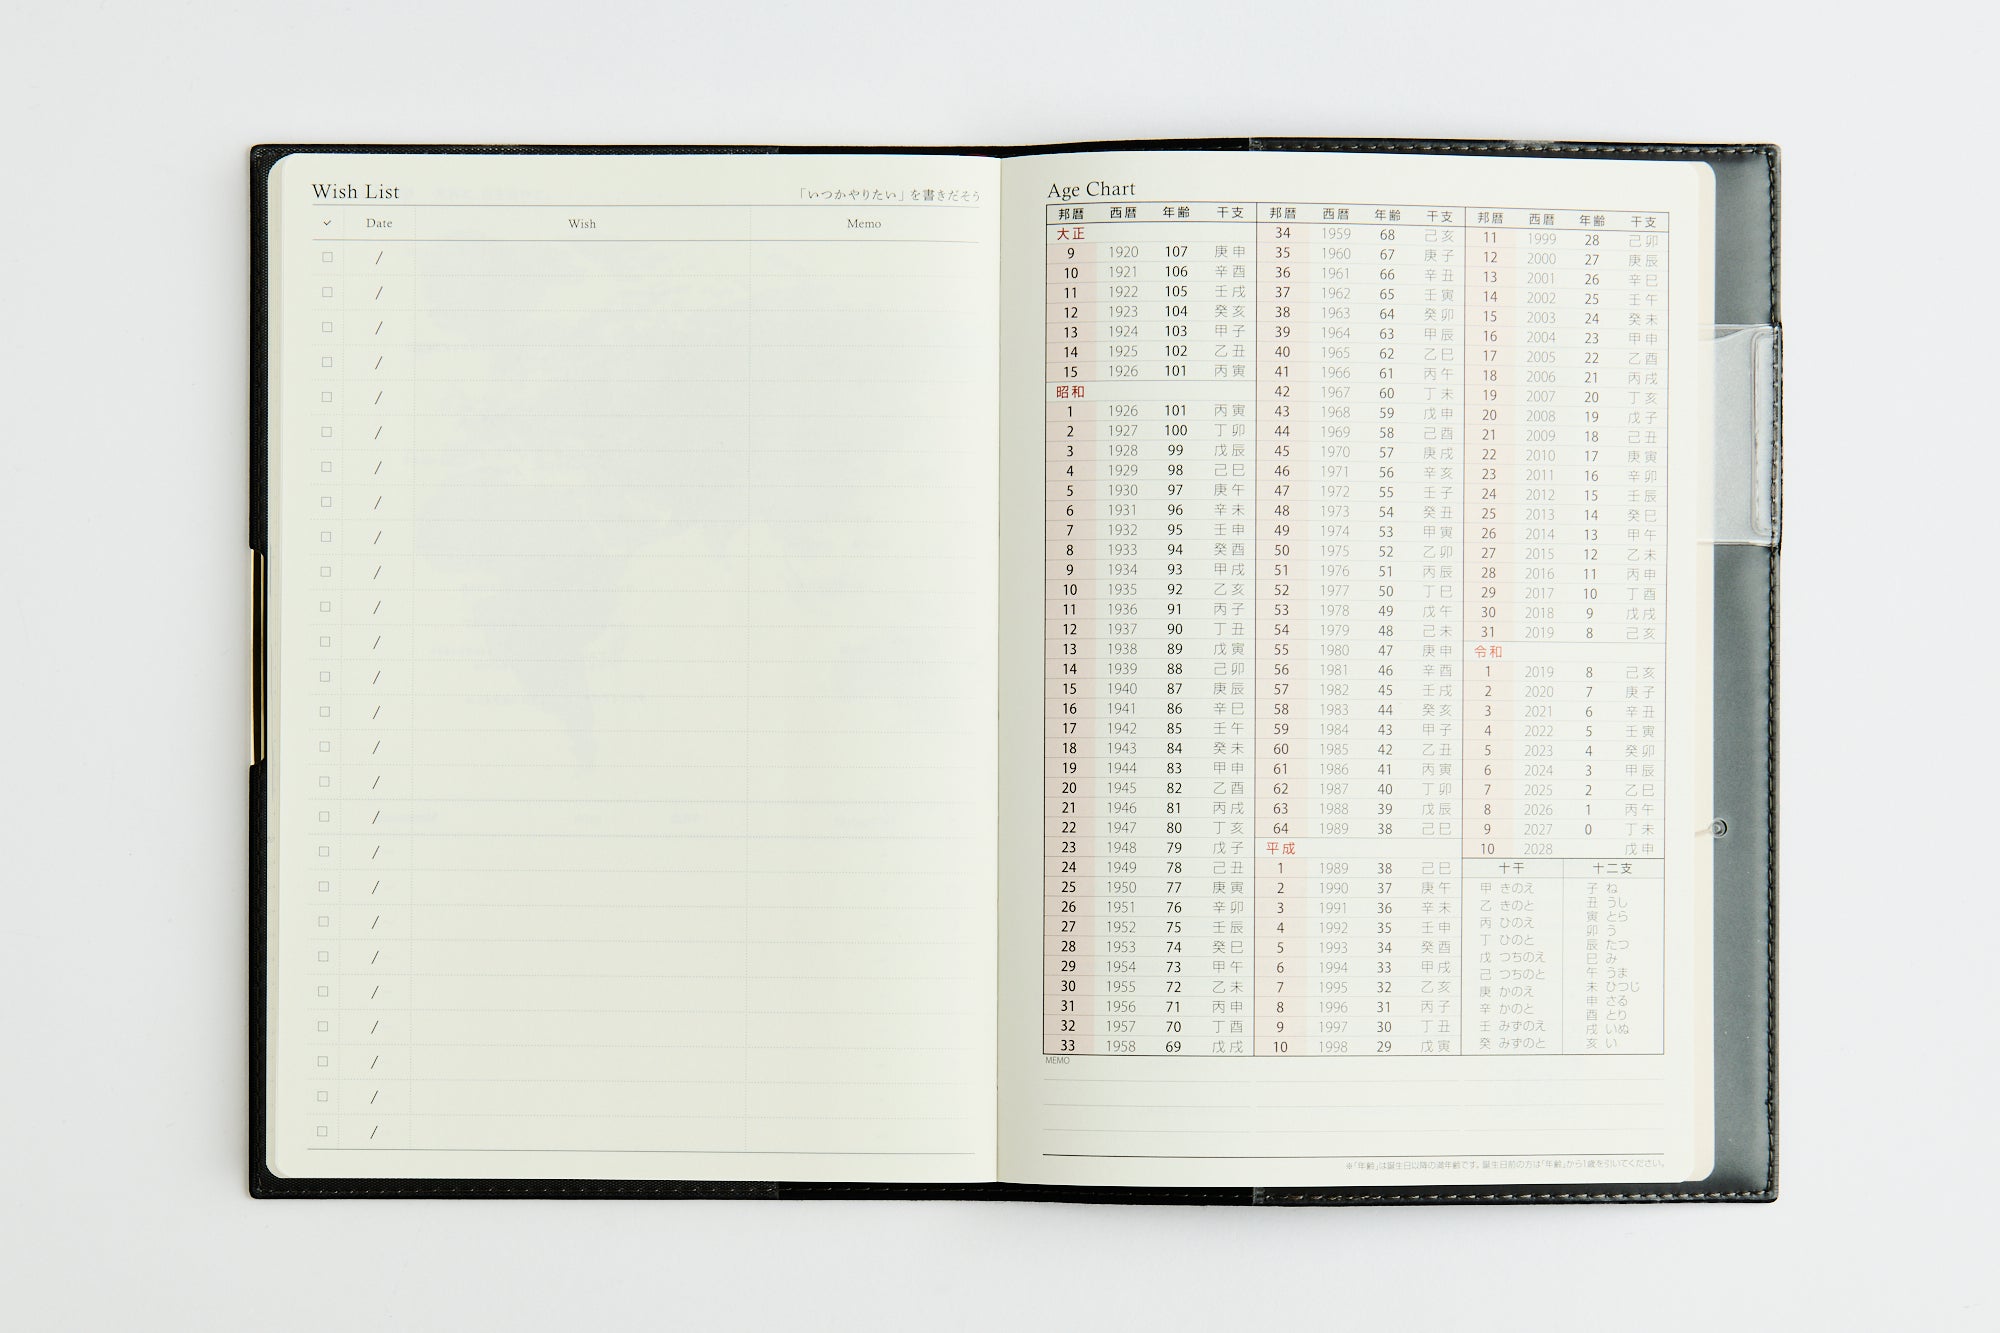 Wish List
「いつかやりたい」を書きだそう
✓ Date Wish Memo
/
/
/
/
/
/
/
/
/
/
/
/
/
/
/
/
/
/
/
/
/
/
/
/
/
/
Age Chart
邦暦 西暦 年齢 干支
大正
9 1920 107 庚申
10 1921 106 辛酉
11 1922 105 壬戌
12 1923 104 癸亥
13 1924 103 甲子
14 1925 102 乙丑
15 1926 101 丙寅
昭和
1 1926 101 丙寅
2 1927 100 丁卯
3 1928 99 戊辰
4 1929 98 己巳
5 1930 97 庚午
6 1931 96 辛未
7 1932 95 壬申
8 1933 94 癸酉
9 1934 93 甲戌
10 1935 92 乙亥
11 1936 91 丙子
12 1937 90 丁丑
13 1938 89 戊寅
14 1939 88 己卯
15 1940 87 庚辰
16 1941 86 辛巳
17 1942 85 壬午
18 1943 84 癸未
19 1944 83 甲申
20 1945 82 乙酉
21 1946 81 丙戌
22 1947 80 丁亥
23 1948 79 戊子
24 1949 78 己丑
25 1950 77 庚寅
26 1951 76 辛卯
27 1952 75 壬辰
28 1953 74 癸巳
29 1954 73 甲午
30 1955 72 乙未
31 1956 71 丙申
32 1957 70 丁酉
33 1958 69 戊戌
邦暦 西暦 年齢 干支
34 1959 68 己亥
35 1960 67 庚子
36 1961 66 辛丑
37 1962 65 壬寅
38 1963 64 癸卯
39 1964 63 甲辰
40 1965 62 乙巳
41 1966 61 丙午
42 1967 60 丁未
43 1968 59 戊申
44 1969 58 己酉
45 1970 57 庚戌
46 1971 56 辛亥
47 1972 55 壬子
48 1973 54 癸丑
49 1974 53 甲寅
50 1975 52 乙卯
51 1976 51 丙辰
52 1977 50 丁巳
53 1978 49 戊午
54 1979 48 己未
55 1980 47 庚申
56 1981 46 辛酉
57 1982 45 壬戌
58 1983 44 癸亥
59 1984 43 甲子
60 1985 42 乙丑
61 1986 41 丙寅
62 1987 40 丁卯
63 1988 39 戊辰
64 1989 38 己巳
平成
1 1989 38 己巳
2 1990 37 庚午
3 1991 36 辛未
4 1992 35 壬申
5 1993 34 癸酉
6 1994 33 甲戌
7 1995 32 乙亥
8 1996 31 丙子
9 1997 30 丁丑
10 1998 29 戊寅
邦暦 西暦 年齢 干支
11 1999 28 己卯
12 2000 27 庚辰
13 2001 26 辛巳
14 2002 25 壬午
15 2003 24 癸未
16 2004 23 甲申
17 2005 22 乙酉
18 2006 21 丙戌
19 2007 20 丁亥
20 2008 19 戊子
21 2009 18 己丑
22 2010 17 庚寅
23 2011 16 辛卯
24 2012 15 壬辰
25 2013 14 癸巳
26 2014 13 甲午
27 2015 12 乙未
28 2016 11 丙申
29 2017 10 丁酉
30 2018 9 戊戌
31 2019 8 己亥
令和
1 2019 8 己亥
2 2020 7 庚子
3 2021 6 辛丑
4 2022 5 壬寅
5 2023 4 癸卯
6 2024 3 甲辰
7 2025 2 乙巳
8 2026 1 丙午
9 2027 0 丁未
10 2028 戊申
十干
甲 きのえ
乙 きのと
丙 ひのえ
丁 ひのと
戊 つちのえ
己 つちのと
庚 かのえ
辛 かのと
壬 みずのえ
癸 みずのと
十二支
子 ね
丑 うし
寅 とら
卯 う
辰 たつ
巳 み
午 うま
未 ひつじ
申 さる
酉 とり
戌 いぬ
亥 い
MEMO
※「年齢」は誕生日以降の満年齢です。誕生日前の方は「年齢」から1歳を引いてください。